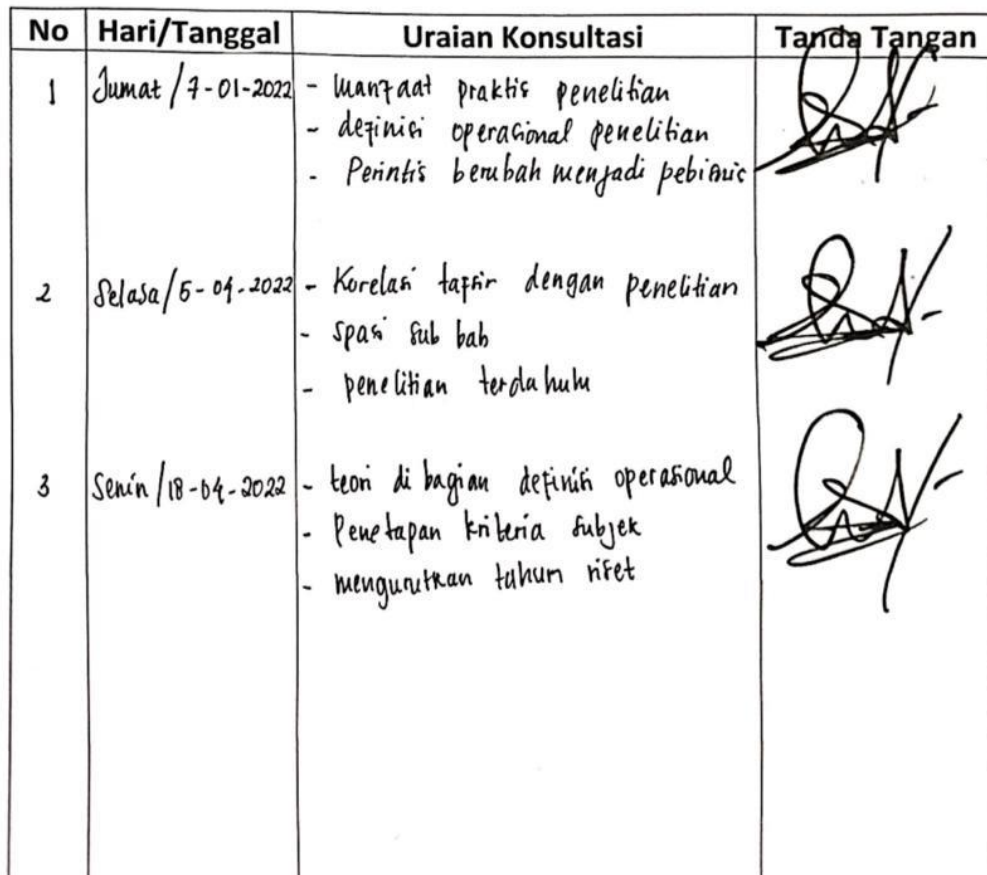 No Hari/Tanggal Uraian Konsultasi Tanda Tangan
1 Jumat / 7-01-2022 - Manfaat praktis penelitian
- definisi operasional penelitian
- Perintis berubah menjadi pebisnis
2 Selasa / 5-04-2022 - Korelasi tafsir dengan penelitian
- spasi sub bab
- penelitian terdahulu
3 Senin / 18-04-2022 - teori di bagian definisi operasional
- Penetapan kriteria subjek
- mengurutkan tahun riset